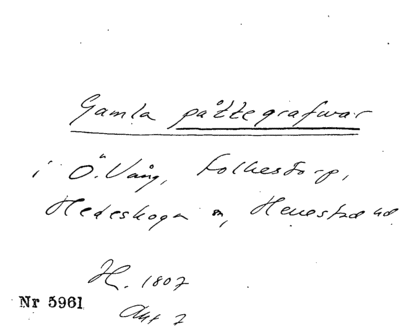 Gamla påttegrafwar
i Ö. Vång, Folkestorp,
Hedeskoga m, Henestad
H. 1807
Nr 5961
Akt 2